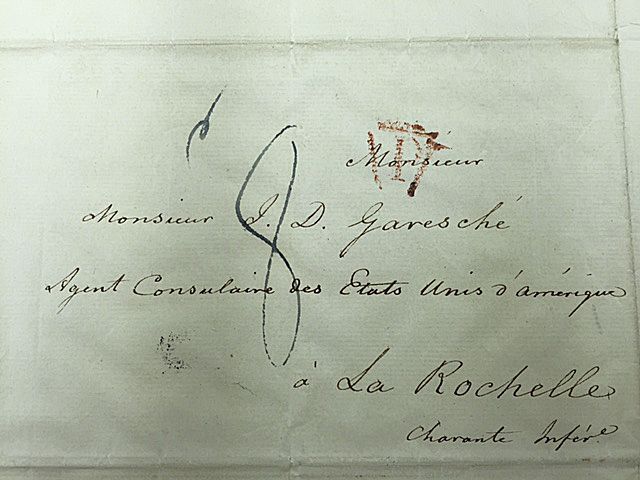 Monsieur
P
Monsieur J. D. Garesché
8
Agent Consulaire des Etats Unis d'amérique
à La Rochelle
Charante Infére